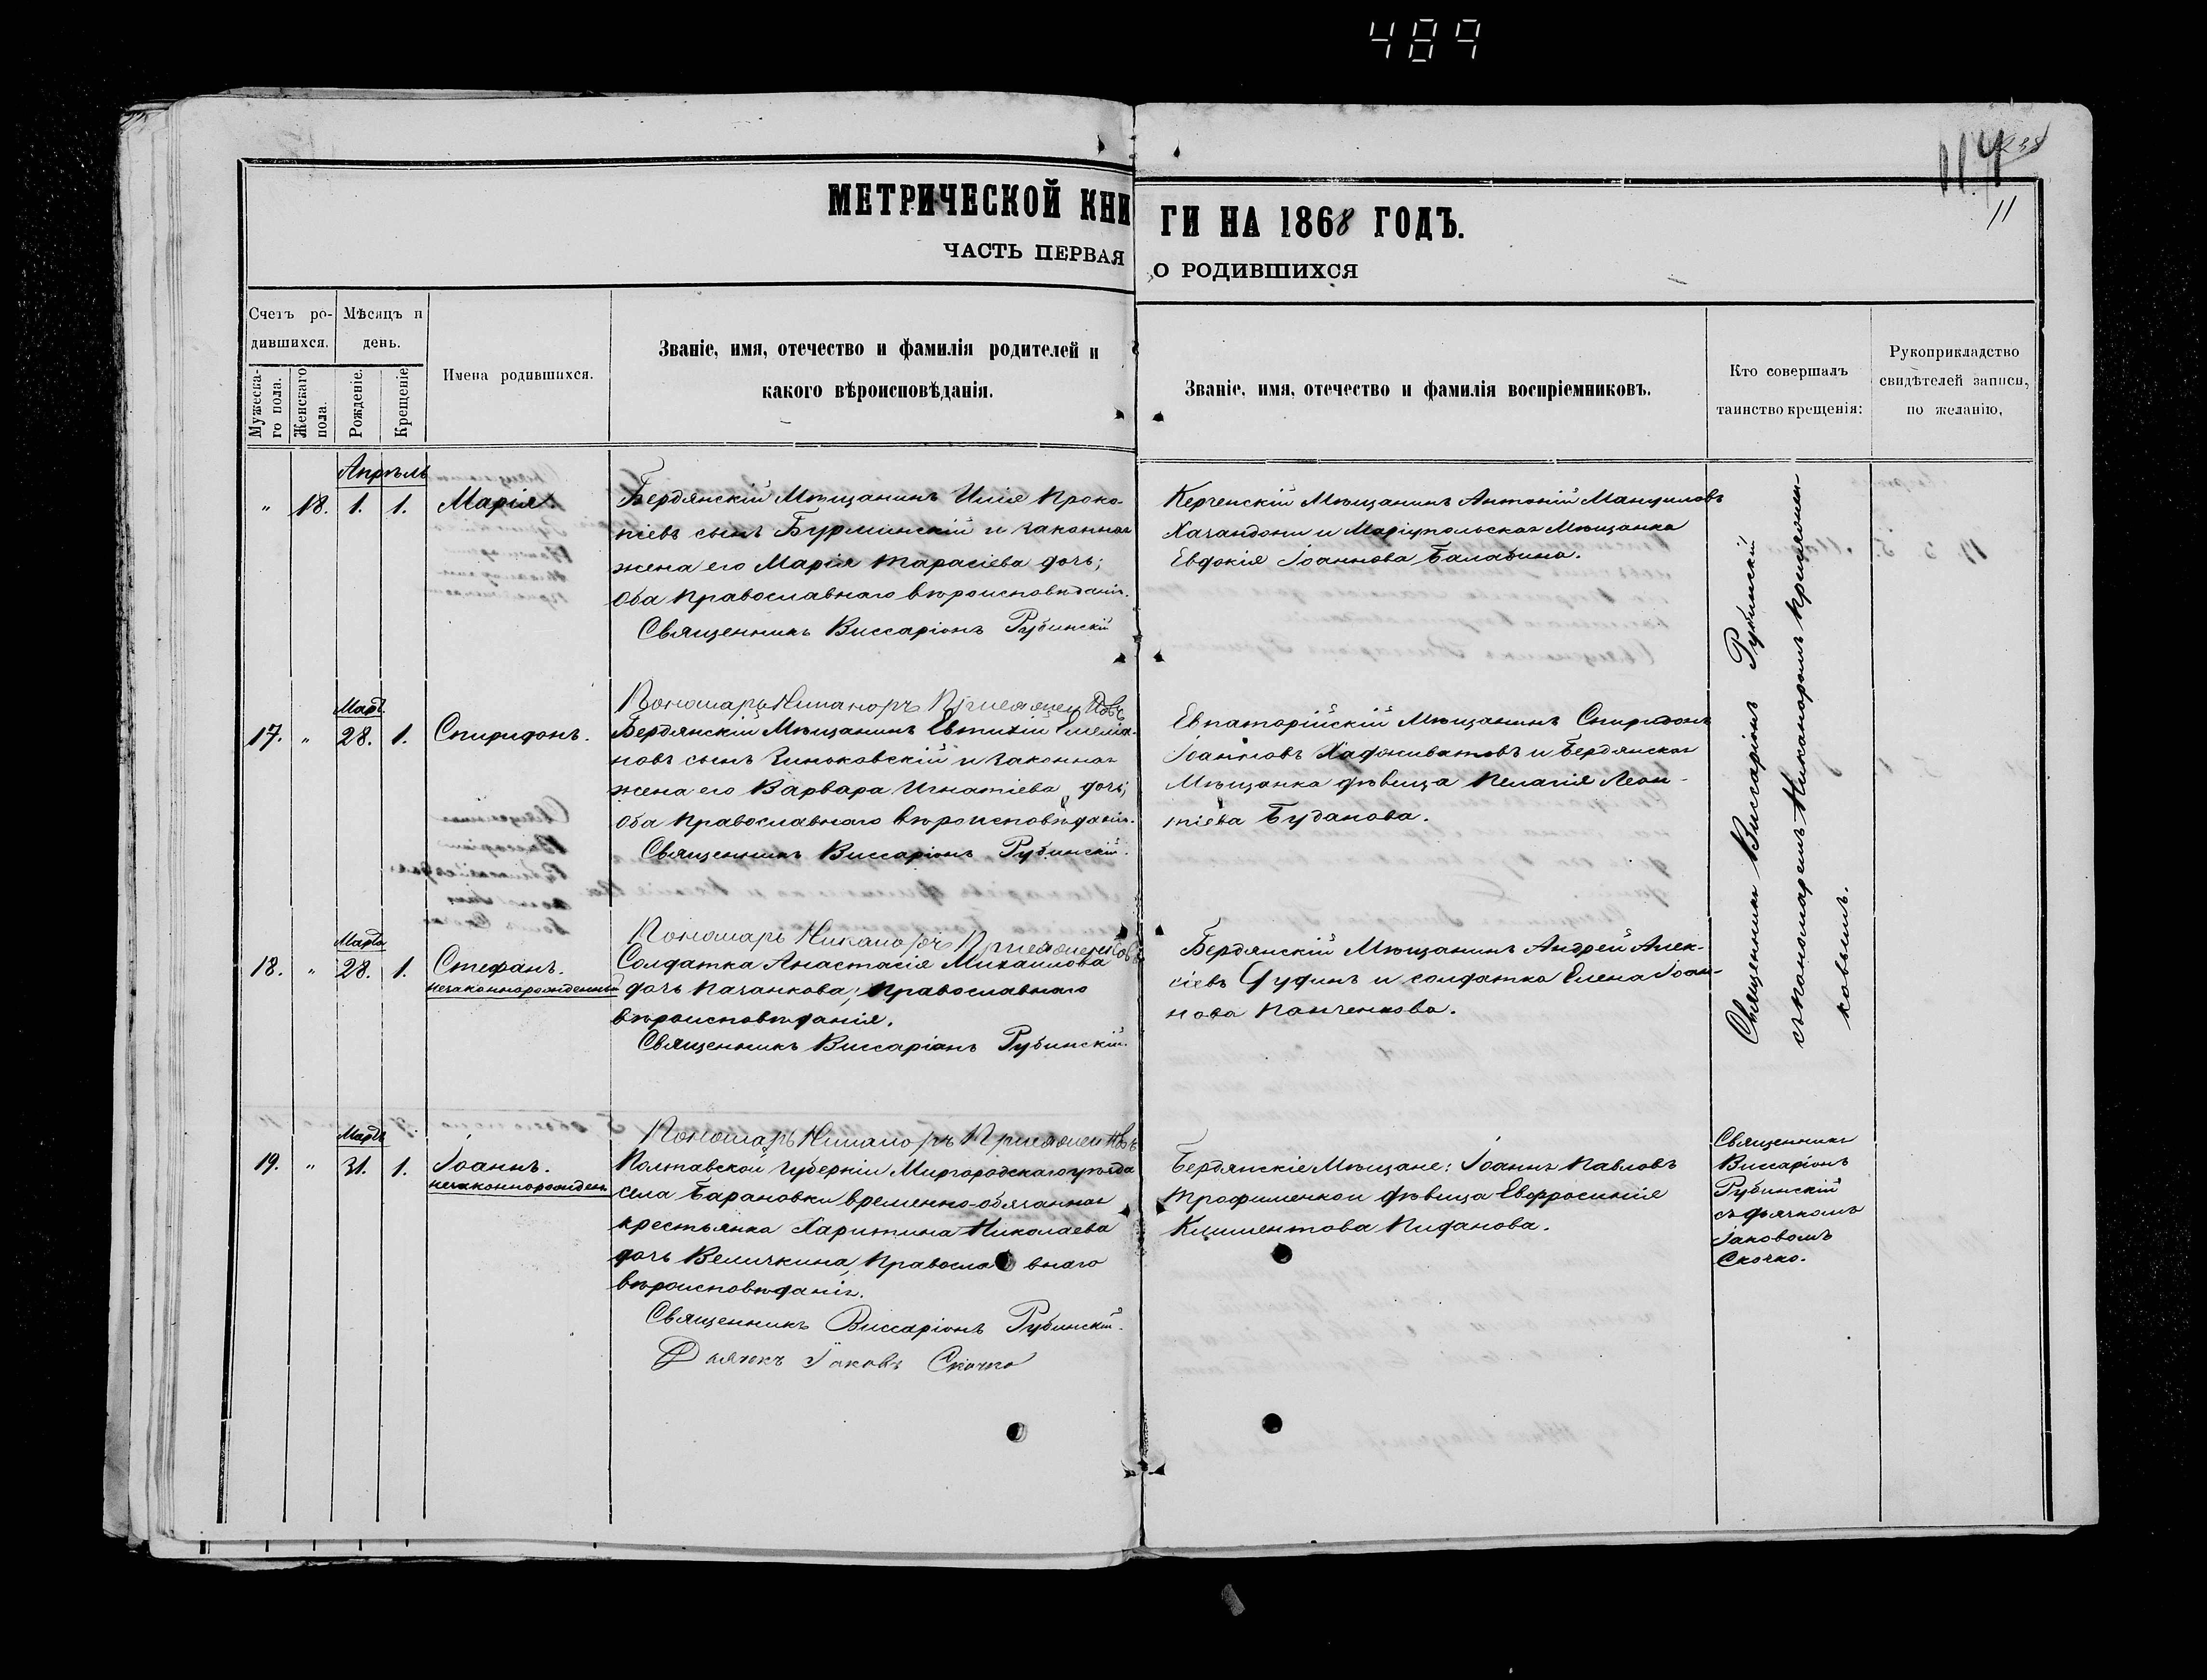 489
114
11
МЕТРИЧЕСКОЙ КНИГИ НА 1868 ГОДЪ.
ЧАСТЬ ПЕРВАЯ О РОДИВШИХСЯ
Счетъ ро-
дившихся.
Мужеска-
го пола.
Женскаго
пола.
Мѣсяцъ и
день.
Рожденіе.
Крещеніе
Имена родившихся.
Званіе, имя, отечество и фамилія родителей и
какого вѣроисповѣданія.
Званіе, имя, отечество и фамилія воспріемниковъ.
Кто совершалъ
таинство крещенія:
Рукоприкладство
свидѣтелей записи,
по желанію,
Апрѣль
" 18. 1. 1. Марія.
Бердянскій Мѣщанинъ Илія Проко-
піевъ сынъ Бурминскій и законная
жена его Марія Тарасіева дочь;
Оба православнаго вѣроисповѣданія.
Священникъ Виссаріонъ Рубинскій
Пономарь Никаноръ
Керченскій Мѣщанинъ Антоній
и Маріупольская Мѣщанка
Евдокія Іоаннова Балабина.
Священникъ Виссаріонъ Рубинскій
съ пономаремъ Никаноромъ
ковымъ.
Март.
17. " 28. 1. Спиридонъ.
Бердянскій Мѣщанинъ Евтихій Емеліа-
новъ сынъ Зиньковскій и законная
жена его Варвара Игнатіева дочь;
Оба православнаго вѣроисповѣданія.
Священникъ Виссаріонъ Рубинскій.
Пономарь Никаноръ
Евпаторійскій Мѣщанинъ Спиридонъ
Іоанновъ и Бердянская
Мѣщанка дѣвица Пелагія Леон-
тіева Буданова.
Марта
18. " 28. 1. Стефанъ.
незаконнорожденный
Солдатка Анастасія Михайлова
дочь Качанкова, православнаго
вѣроисповѣданія.
Священникъ Виссаріонъ Рубинскій.
Пономарь Никаноръ
Бердянскій Мѣщанинъ Андрей Алек-
сіевъ и солдатка Елена Іоан-
нова Панченкова.
Марта
19. " 31. 1. Іоаннъ.
незаконнорожден.
Полтавской губерніи Миргородскаго уѣзда
села Барановки временно-обязанная
крестьянка Харитина Николаева
дочь Величкина, православнаго
вѣроисповѣданія.
Священникъ Виссаріонъ Рубинскій.
Дьячекъ Іаковъ Скочко
Бердянскіе Мѣщане: Іоаннъ Павловъ
Трофименко и дѣвица Евфросинія
Климентова Пиданова.
Священникъ
Виссаріонъ
Рубинскій
съ дьячкомъ
Іаковомъ
Скочко.